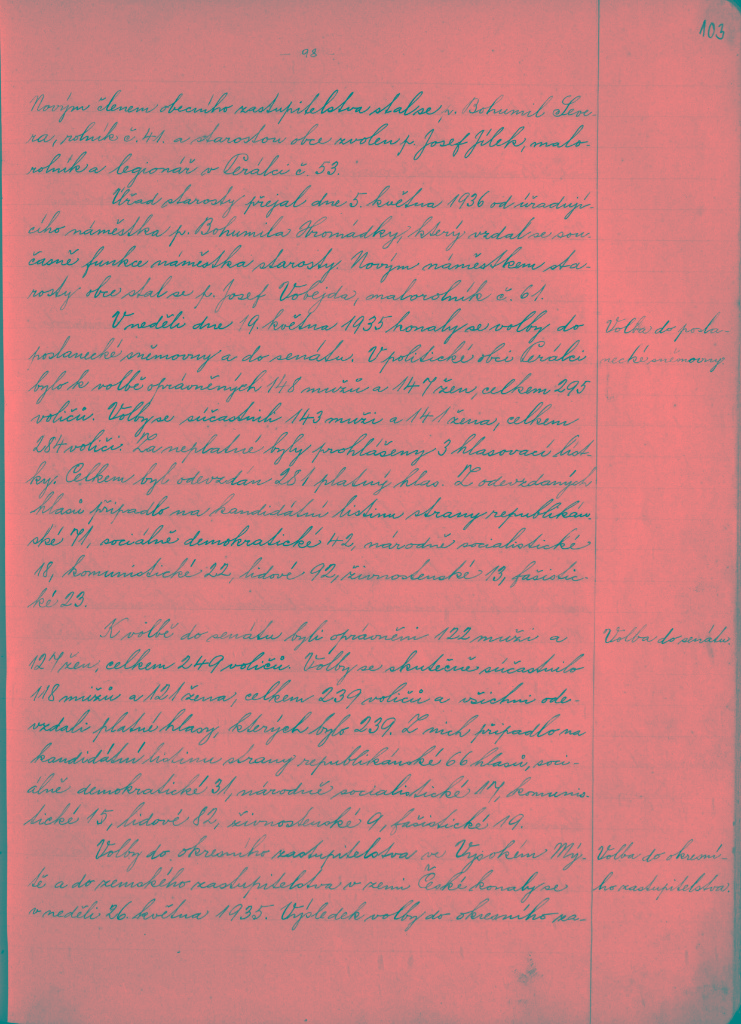 103
98
Novým členem obecního zastupitelstva stal se p. Bohumil Seve-
ra, rolník č. 41. a starostou obce zvolen p. Josef Jílek, malo-
rolník a legionář v Perálci č. 53.
Úřad starosty přejal dne 5. května 1936 od úřadují-
cího náměstka p. Bohumila Hromádky, který vzdal se sou-
časně funkce náměstka starosty. Novým náměstkem sta-
rosty obce stal se p. Josef Vobejda, malorolník č. 61.
V neděli dne 19. května 1935 konaly se volby do
Volba do posla-
poslanecké sněmovny a do senátu. V politické obci Perálci
necké sněmovny
bylo k volbě oprávněných 148 mužů a 147 žen, celkem 295
voličů. Volby se súčastnili 143 muži a 141 žena, celkem
284 voliči. Za neplatné byly prohlášeny 3 hlasovací líst-
ky. Celkem byl odevzdán 281 platný hlas. Z odevzdaných
hlasů připadlo na kandidátní listinu strany republikán-
ské 71, sociálně demokratické 42, národně socialistické
18, komunistické 22, lidové 92, živnostenské 13, fašistic-
ké 23.
K volbě do senátu byli oprávněni 122 muži a
Volba do senátu.
127 žen, celkem 249 voličů. Volby se skutečně súčastnilo
118 mužů a 121 žena, celkem 239 voličů a všichni ode-
vzdali platné hlasy, kterých bylo 239. Z nich připadlo na
kandidátní listinu strany republikánské 66 hlasů, soci-
álně demokratické 31, národně socialistické 17, komunis-
tické 15, lidové 82, živnostenské 9, fašistické 19.
Volby do okresního zastupitelstva ve Vysokém Mý-
Volba do okresní-
tě a do zemského zastupitelstva v zemi České konaly se
ho zastupitelstva.
v neděli 26. května 1935. Výsledek volby do okresního za-